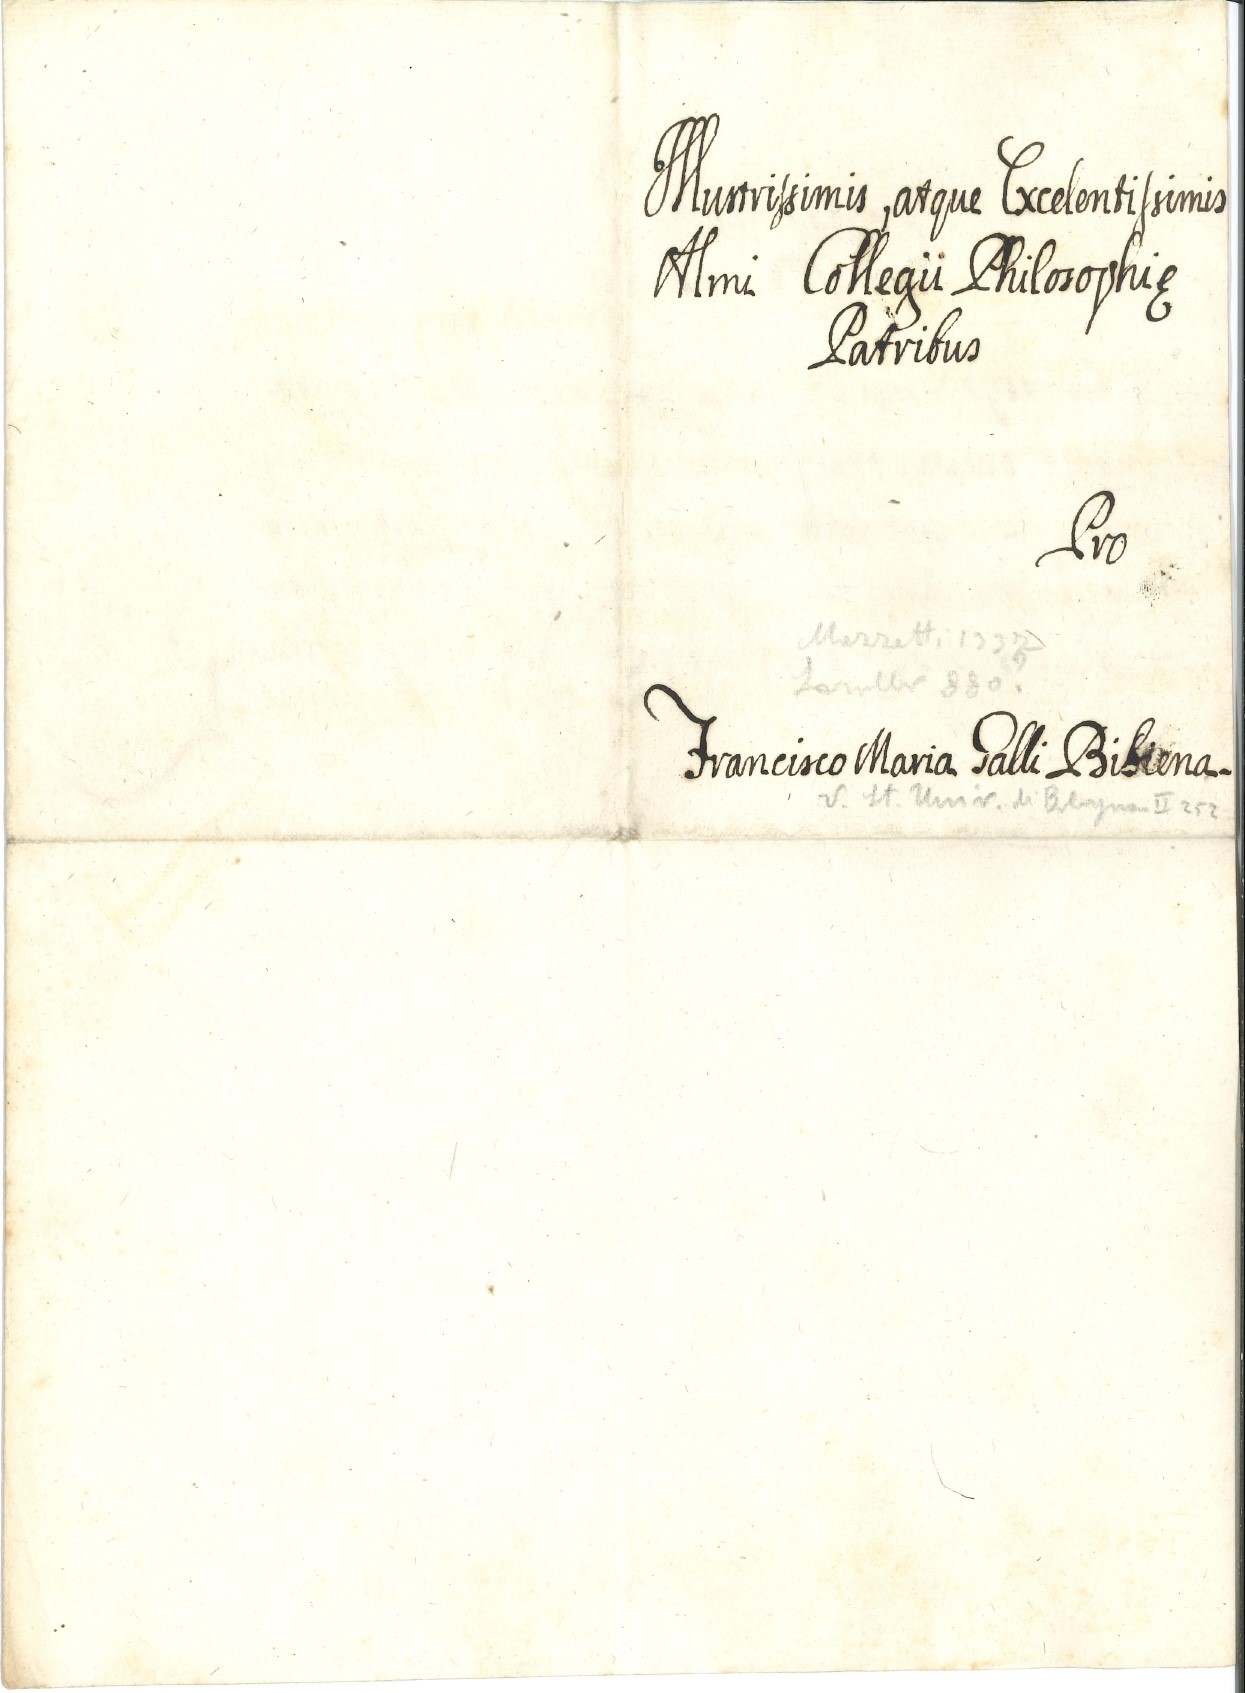 Illustrissimis, atque Excelentissimis
Almi Collegii Philosophię
Patribus
Pro
Mazzetti
880?
Francisco Maria Galli Bibiena.
v. St. Univ. di Bologna II 252